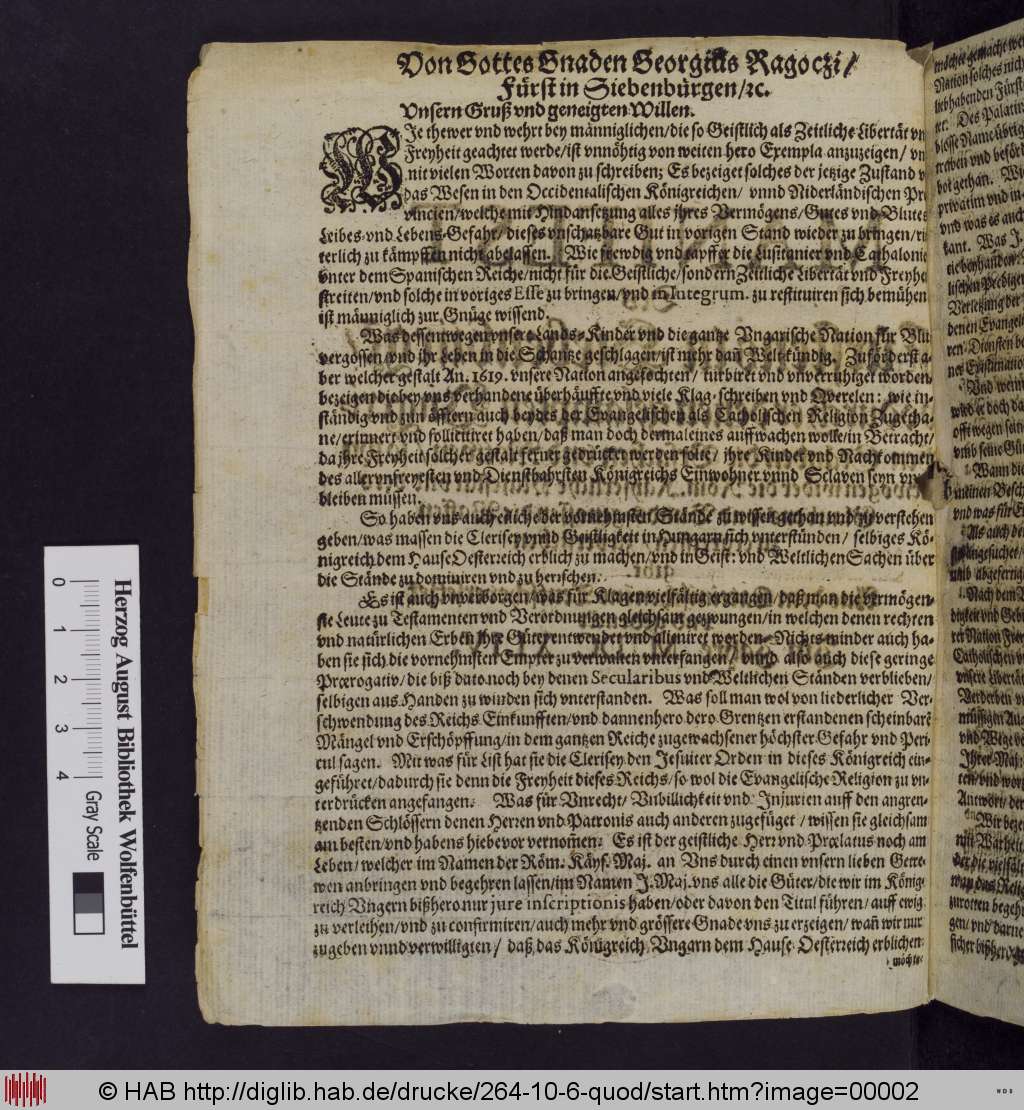 Von Gottes Gnaden Georgius Ragoczi/
Fürst in Siebenbürgen/ꝛc.
Vnsern Gruß vnd geneigten Willen.
WJe thewer vnd wehrt bey männiglichen/die so Geistlich als Zeitliche Libertät vn
Freyheit geachtet werde/ist vnnöhtig von weiten hero Exempla anzuzeigen/ vn
mit vielen Worten davon zu schreiben; Es bezeiget solches der jetzige Zustand v
das Wesen in den Occidentalischen Königreichen/ vnnd Niderländischen Pro
vincien/welche mit Hindansetzung alles jhres Vermögens/Gutes vnd Blutes
Leibes-vnd Lebens-Gefahr/dieses vnschatzbare Gut in vorigen Stand wieder zu bringen/rit
terlich zu kämpffen nicht abelassen. Wie frewdig vnd tapffer die Lusitanier vnd Cathalonie
vnter dem Spanischen Reiche/nicht für die Geistliche/sondern Zeitliche Libertät vnd Freyhe
streiten/vnd solche in voriges Esse zu bringen/vnd in Integrum. zu restituiren sich bemühen
ist männiglich zur Gnüge wissend.
Was dessentwegen vnsere Lands-Kinder vnd die gantze Vngarische Nation für Blu
vergossen/vnd jhr Leben in die Schantze geschlagen/ist mehr dañ Welt-kündig. Zuförderst a-
ber welcher gestalt An. 1619. vnsere Nation angefochten/ turbiret vnd vnverruhiget worden
bezeigen die bey vns verhandene überhäuffte vnd viele Klag-schreiben vnd Qverelen: wie in-
ständig vnd zun öfftern auch beydes der Evangelischen als Catholischen Religion Zugetha-
ne/erinnert vnd sollicitiret haben/daß man doch dermaleines auffwachen wolle/in Betracht/
da jhre Freyheit solcher gestalt ferner gedrücket werden solte/ jhre Kinder vnd Nachkommen
des allervnfreyesten vnd Dienstbahrsten Königreichs Einwohner vnnd Sclaven seyn vn
bleiben müssen.
So haben vns auch etliche der vornehmsten Stände zu wissen gethan vnd zu verstehen
geben/was massen die Clerisey vnnd Geistligkeit in Hungarn sich vnterstünden/ selbiges Kö-
nigreich dem Hause Oesterreich erblich zu machen/vnd in Geist: vnd Weltlichen Sachen über
die Stände zu dominiren vnd zu herrschen.
Es ist auch vnverborgen/was für Klagen vielfältig ergangen/daß man die vermögen-
ste Leute zu Testamenten vnd Verordnungen gleichsam gezwungen/in welchen denen rechten
vnd natürlichen Erben jhre Güter entwendet vnd alieniret worden. Nichts minder auch ha-
ben sie sich die vornehmsten Empter zu verwalten vnterfangen/ vnnd also auch diese geringe
Prærogativ/die biß dato noch bey denen Secularibus vnd Weltlichen Ständen verblieben/
selbigen aus Handen zu winden sich vnterstanden. Was soll man wol von liederlicher Ver-
schwendung des Reichs Einkunfften/vnd dannenhero dero Grentzen erstandenen scheinbarē
Mängel vnd Erschöpffung/in dem gantzen Reiche zugewachsener höchster Gefahr vnd Peri
cul sagen. Mit was für List hat sie die Clerisey den Jesuiter Orden in dieses Königreich ein-
geführet/dadurch sie denn die Freyheit dieses Reichs/so wol die Evangelische Religion zu vn-
terdrücken angefangen. Was für Vnrecht/ Vnbillichkeit vnd Injurien auff den angren-
tzenden Schlössern denen Herren vnd Patronis auch anderen zugefüget / wissen sie gleichsam
am besten/vnd habens hiebevor vernom̃en. Es ist der geistliche Herr vnd Prælatus noch am
Leben/welcher im Namen der Röm. Käys. Maj. an Vns durch einen vnsern lieben Getre-
wen anbringen vnd begehren lassen/im Namen J. Maj. vns alle die Güter/die wir im König
reich Vngern bißhero nur jure inscriptionis haben/oder davon den Titul führen/auff ewig
zu verleihen/vnd zu confirmiren/auch mehr vnd grössere Gnade vns zu erzeigen/wañ wir nur
zugeben vnnd verwilligten/ daß das Königreich Vngarn dem Hause Oesterreich erblichen
möchte
möchte gemacht wer
Nation solches nich
liebhabenden Fürst
Des Palatin
blosse Name übrig
trieben vnd beförd
bot gethan. Wi
privatim vnd in
vnd was es auch
kant. Was J.
lischen Prediger
Verletzung der
denen Evangeli
Vnd wenn
wird er doch da
offt wegen sein
vmb seine Gü
Wann die
meinen Besch
vnd was für E
Als auch de
vmb abgefertig
Nach dem V
digkeit vnd Geb
Catholischen v
vnsere Libertät
Verderben v
müssigen Au
vnd Wege v
Jhrer Maj.
ten/vnd wor
Antwort/ der
Wir beze
mit Warheit
der die vielfäl
zurotten begeh
gen/vnd darne
sicher bißhero
Herzog August Bibliothek Wolfenbüttel
0 1 2 3 4 Gray Scale
© HAB http://diglib.hab.de/drucke/264-10-6-quod/start.htm?image=00002
WDB